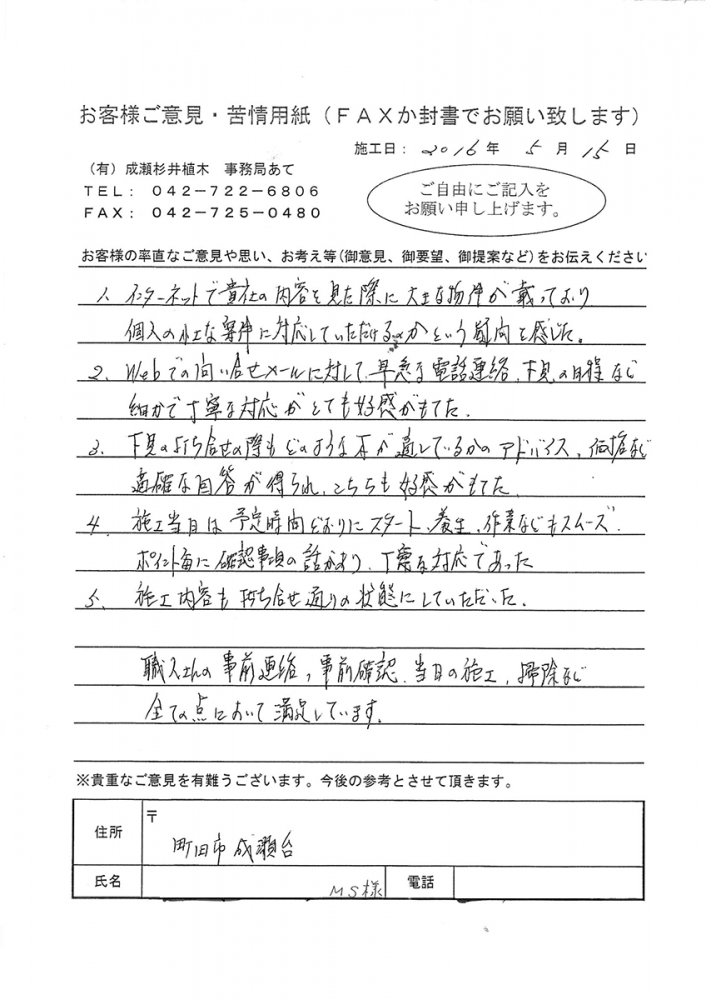 お客様ご意見・苦情用紙（ＦＡＸか封書でお願い致します）
施工日： 2016 年 5 月 15 日
（有）成瀬杉井植木 事務局あて
ＴＥＬ： ０４２－７２２－６８０６
ＦＡＸ： ０４２－７２５－０４８０
ご自由にご記入を
お願い申し上げます。
お客様の率直なご意見や思い、お考え等(御意見、御要望、御提案など)をお伝えください
1. インターネットで貴社の内容を見た際に大きな物件が載っており
個人の小さな案件に対応していただけるのかという疑問を感じた。
2. Webでの問い合せメールに対して、早急な電話連絡、下見の日程など
細かで丁寧な対応がとても好感がもてた。
3. 下見の打ち合せの際もどのような木が適しているかのアドバイス、価格など
適確な回答が得られ、こちらも好感がもてた。
4. 施工当日は予定時間どおりにスタート、養生、作業などもスムーズ、
ポイント毎に確認事項の話があり、丁寧な対応であった
5. 施工内容も打ち合せ通りの状態にしていただいた。
職人さんの事前連絡、事前確認、当日の施工、掃除など
全ての点において満足しています。
※貴重なご意見を有難うございます。今後の参考とさせて頂きます。
住所 〒
町田市成瀬台
氏名 MS様 電話